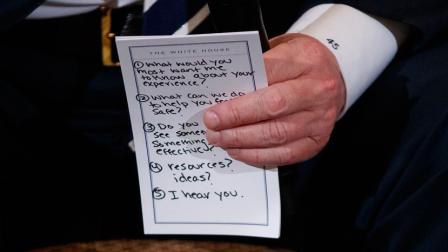 THE WHITE HOUSE
45
① What would you
most want me
to know about your
experience?
② What can we do
to help you
safe?
③ Do you
see some
Something
effective?
④ resources?
ideas?
⑤ I hear you.